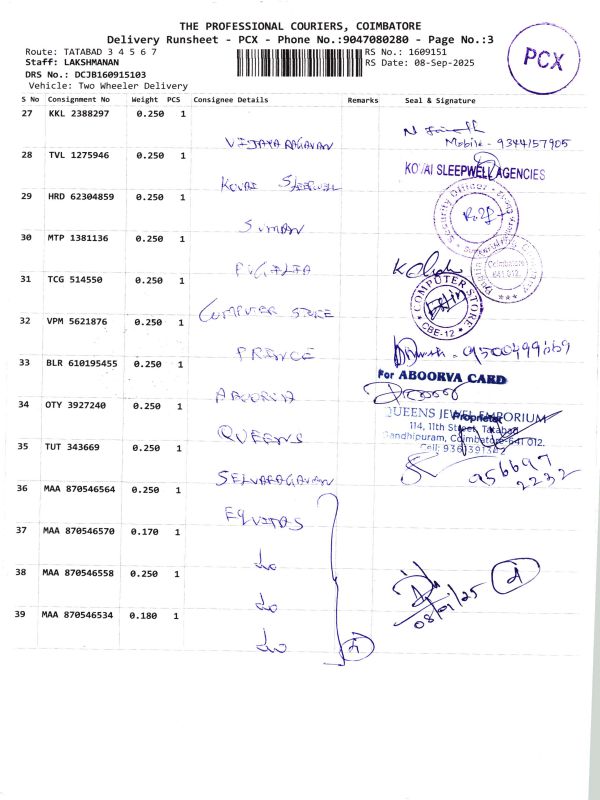 THE PROFESSIONAL COURIERS, COIMBATORE
Delivery Runsheet - PCX - Phone No.:9047080280 - Page No.:3
Route: TATABAD 3 4 5 6 7
RS No.: 1609151
Staff: LAKSHMANAN
RS Date: 08-Sep-2025
DRS No.: DCJB160915103
Vehicle: Two Wheeler Delivery
PCX
S No Consignment No Weight PCS Consignee Details Remarks Seal & Signature
27 KKL 2388297 0.250 1
VIJAYARAGAVAN
Mobile - 9344157905
28 TVL 1275946 0.250 1
KOVAI SLEEPWELL
KOVAI SLEEPWELL AGENCIES
29 HRD 62304859 0.250 1
SUMAN
Security Officer
30 MTP 1381136 0.250 1
Coimbatore
641 012
31 TCG 514550 0.250 1
COMPUTER STORE
COMPUTER STORE
CBE-12
32 VPM 5621876 0.250 1
PRINCE
33 BLR 610195455 0.250 1
ABOORVA
For ABOORVA CARD
Proprietor
34 OTY 3927240 0.250 1
QUEENS
QUEENS JEWEL EMPORIUM
114, 11th Street, Tatabad
Gandhipuram, Coimbatore-641 012.
35 TUT 343669 0.250 1
SELVARAGAVAN
956697
2232
36 MAA 870546564 0.250 1
EQUITAS
37 MAA 870546570 0.170 1
do
38 MAA 870546558 0.250 1
do
08/09/25
39 MAA 870546534 0.180 1
do